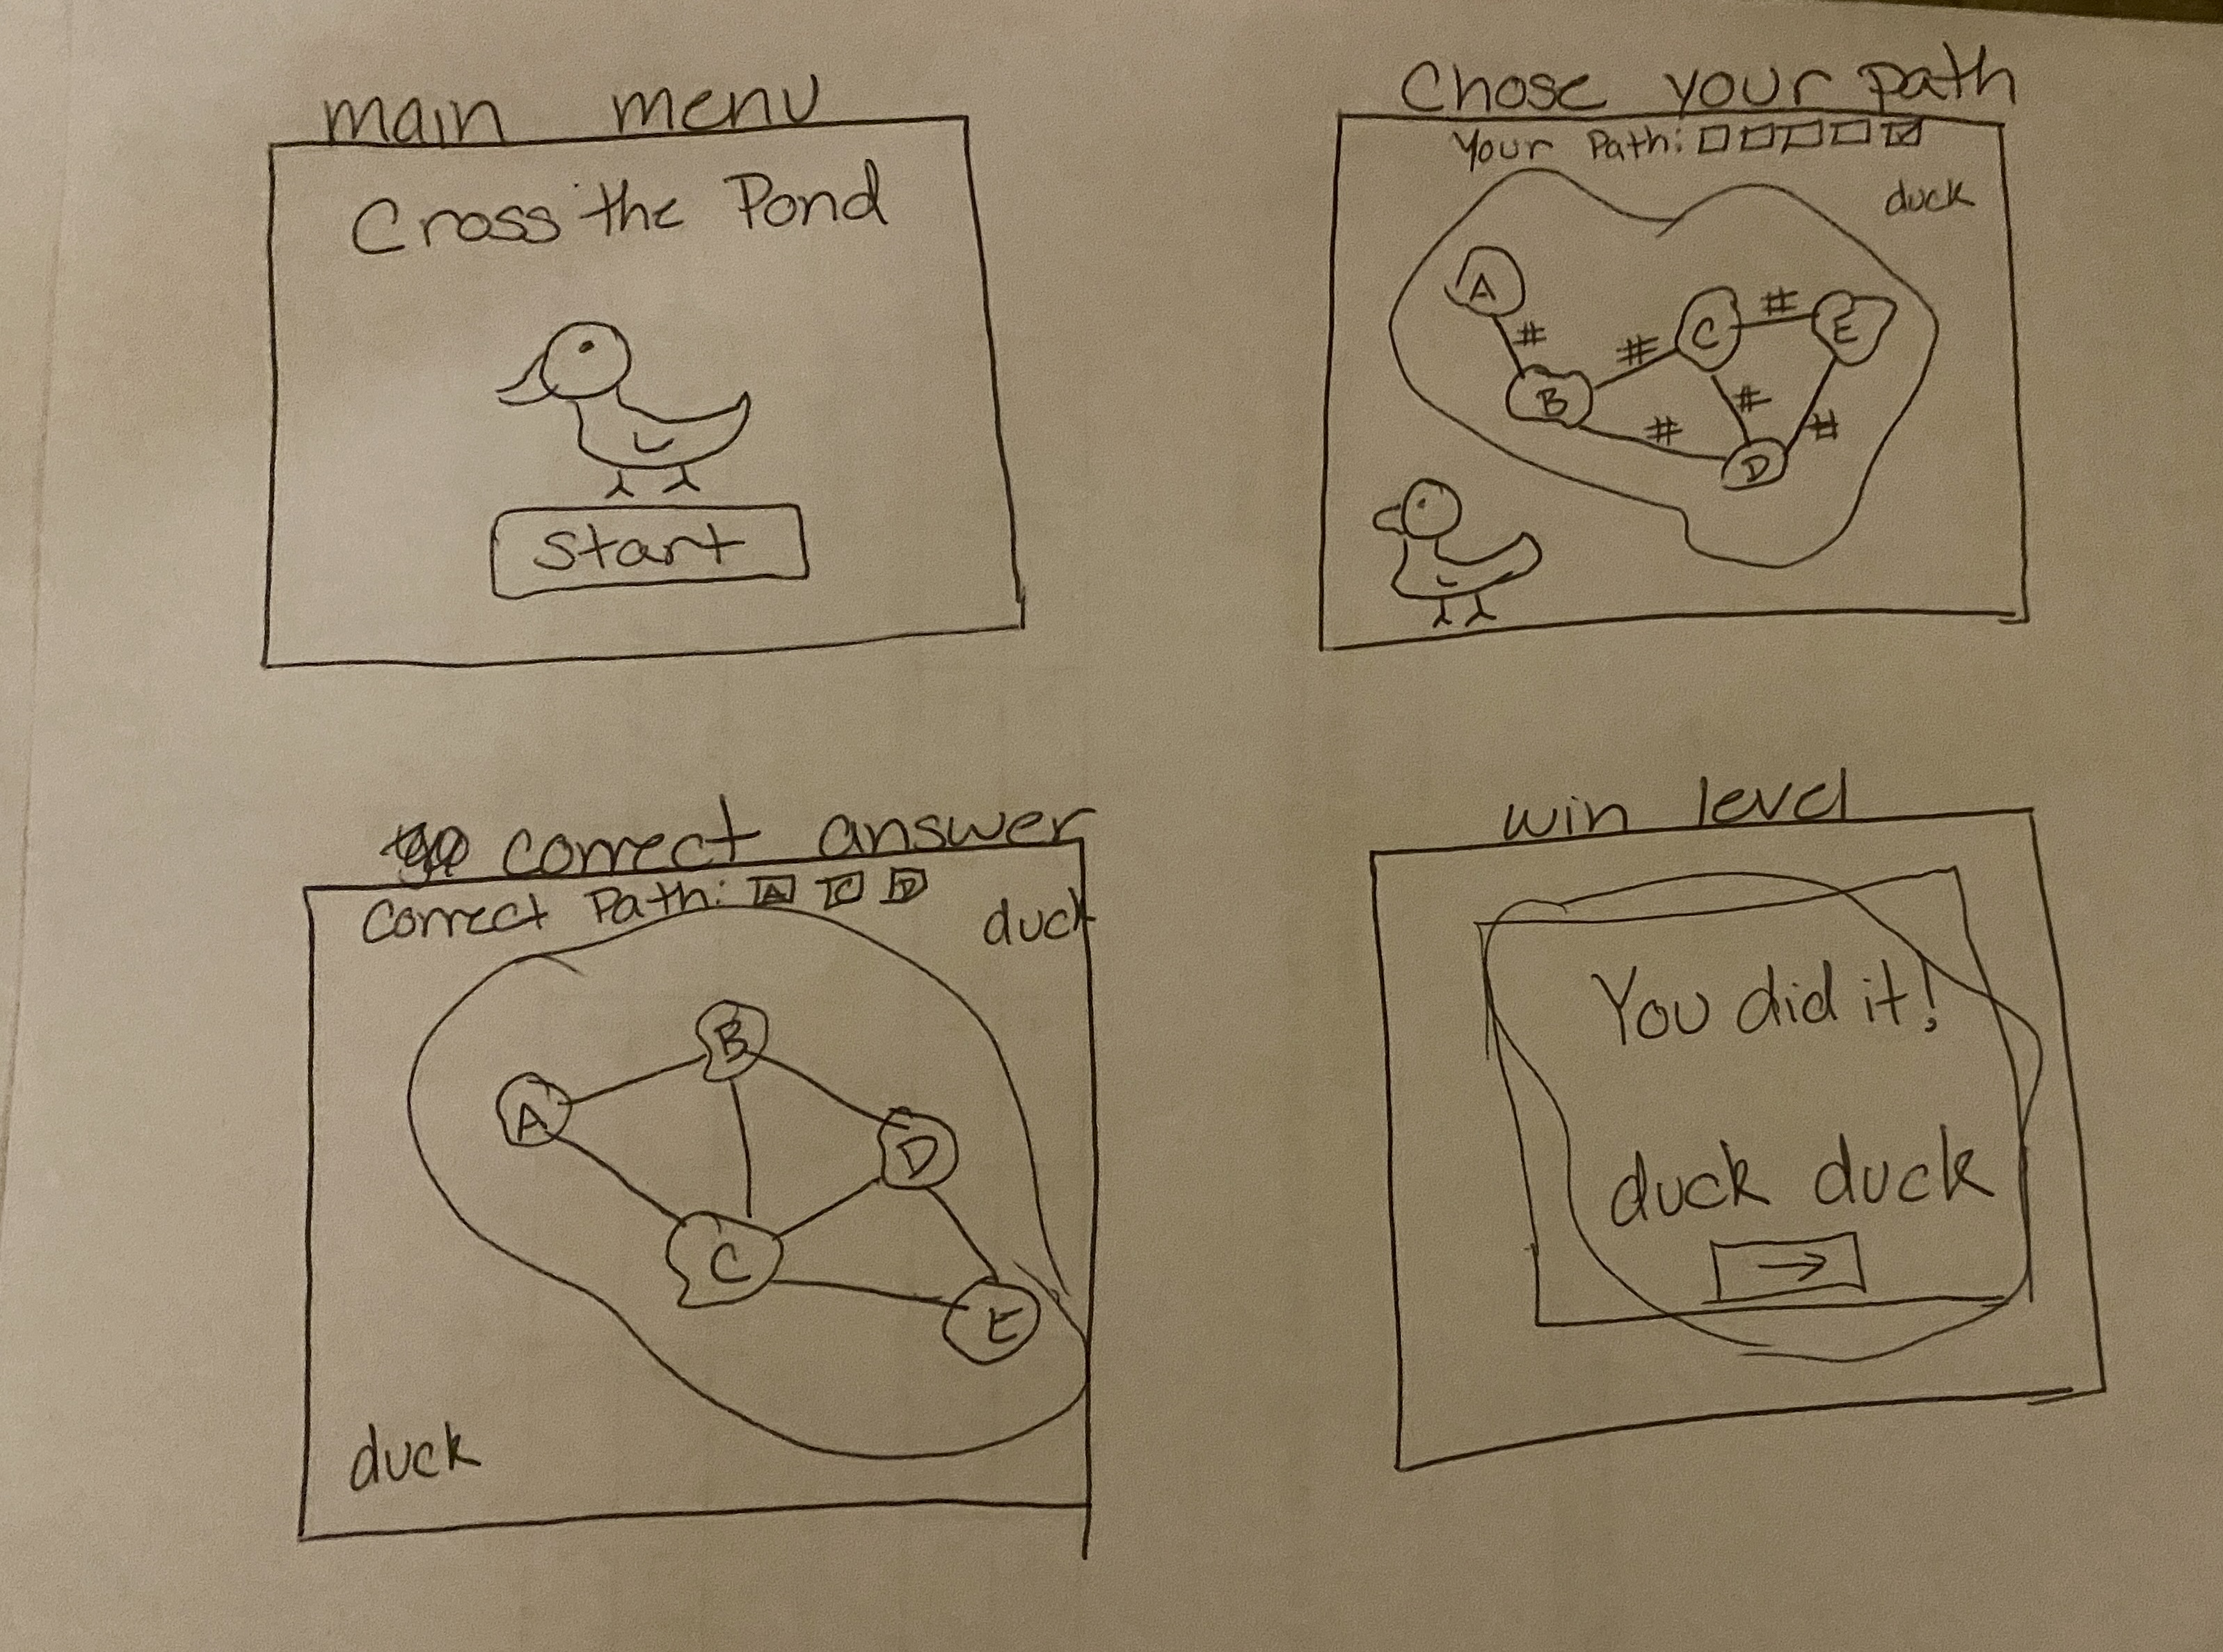 main menu
Cross the Pond
Start
Chose your path
Your Path:
duck
A
#
#
C
#
E
B
#
#
#
D
correct answer
Correct Path: A C D
duck
B
A
D
C
E
duck
win level
You did it!
duck duck
→